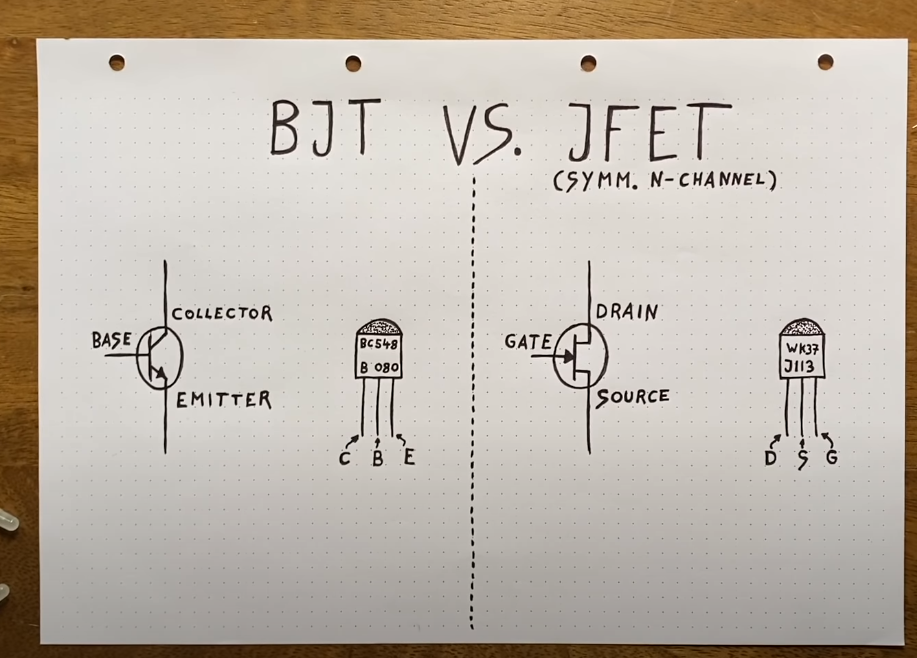 BJT VS. JFET
(SYMM. N-CHANNEL)
COLLECTOR
BASE
EMITTER
BC548
B 080
C B E
DRAIN
GATE
SOURCE
WK37
J113
D S G